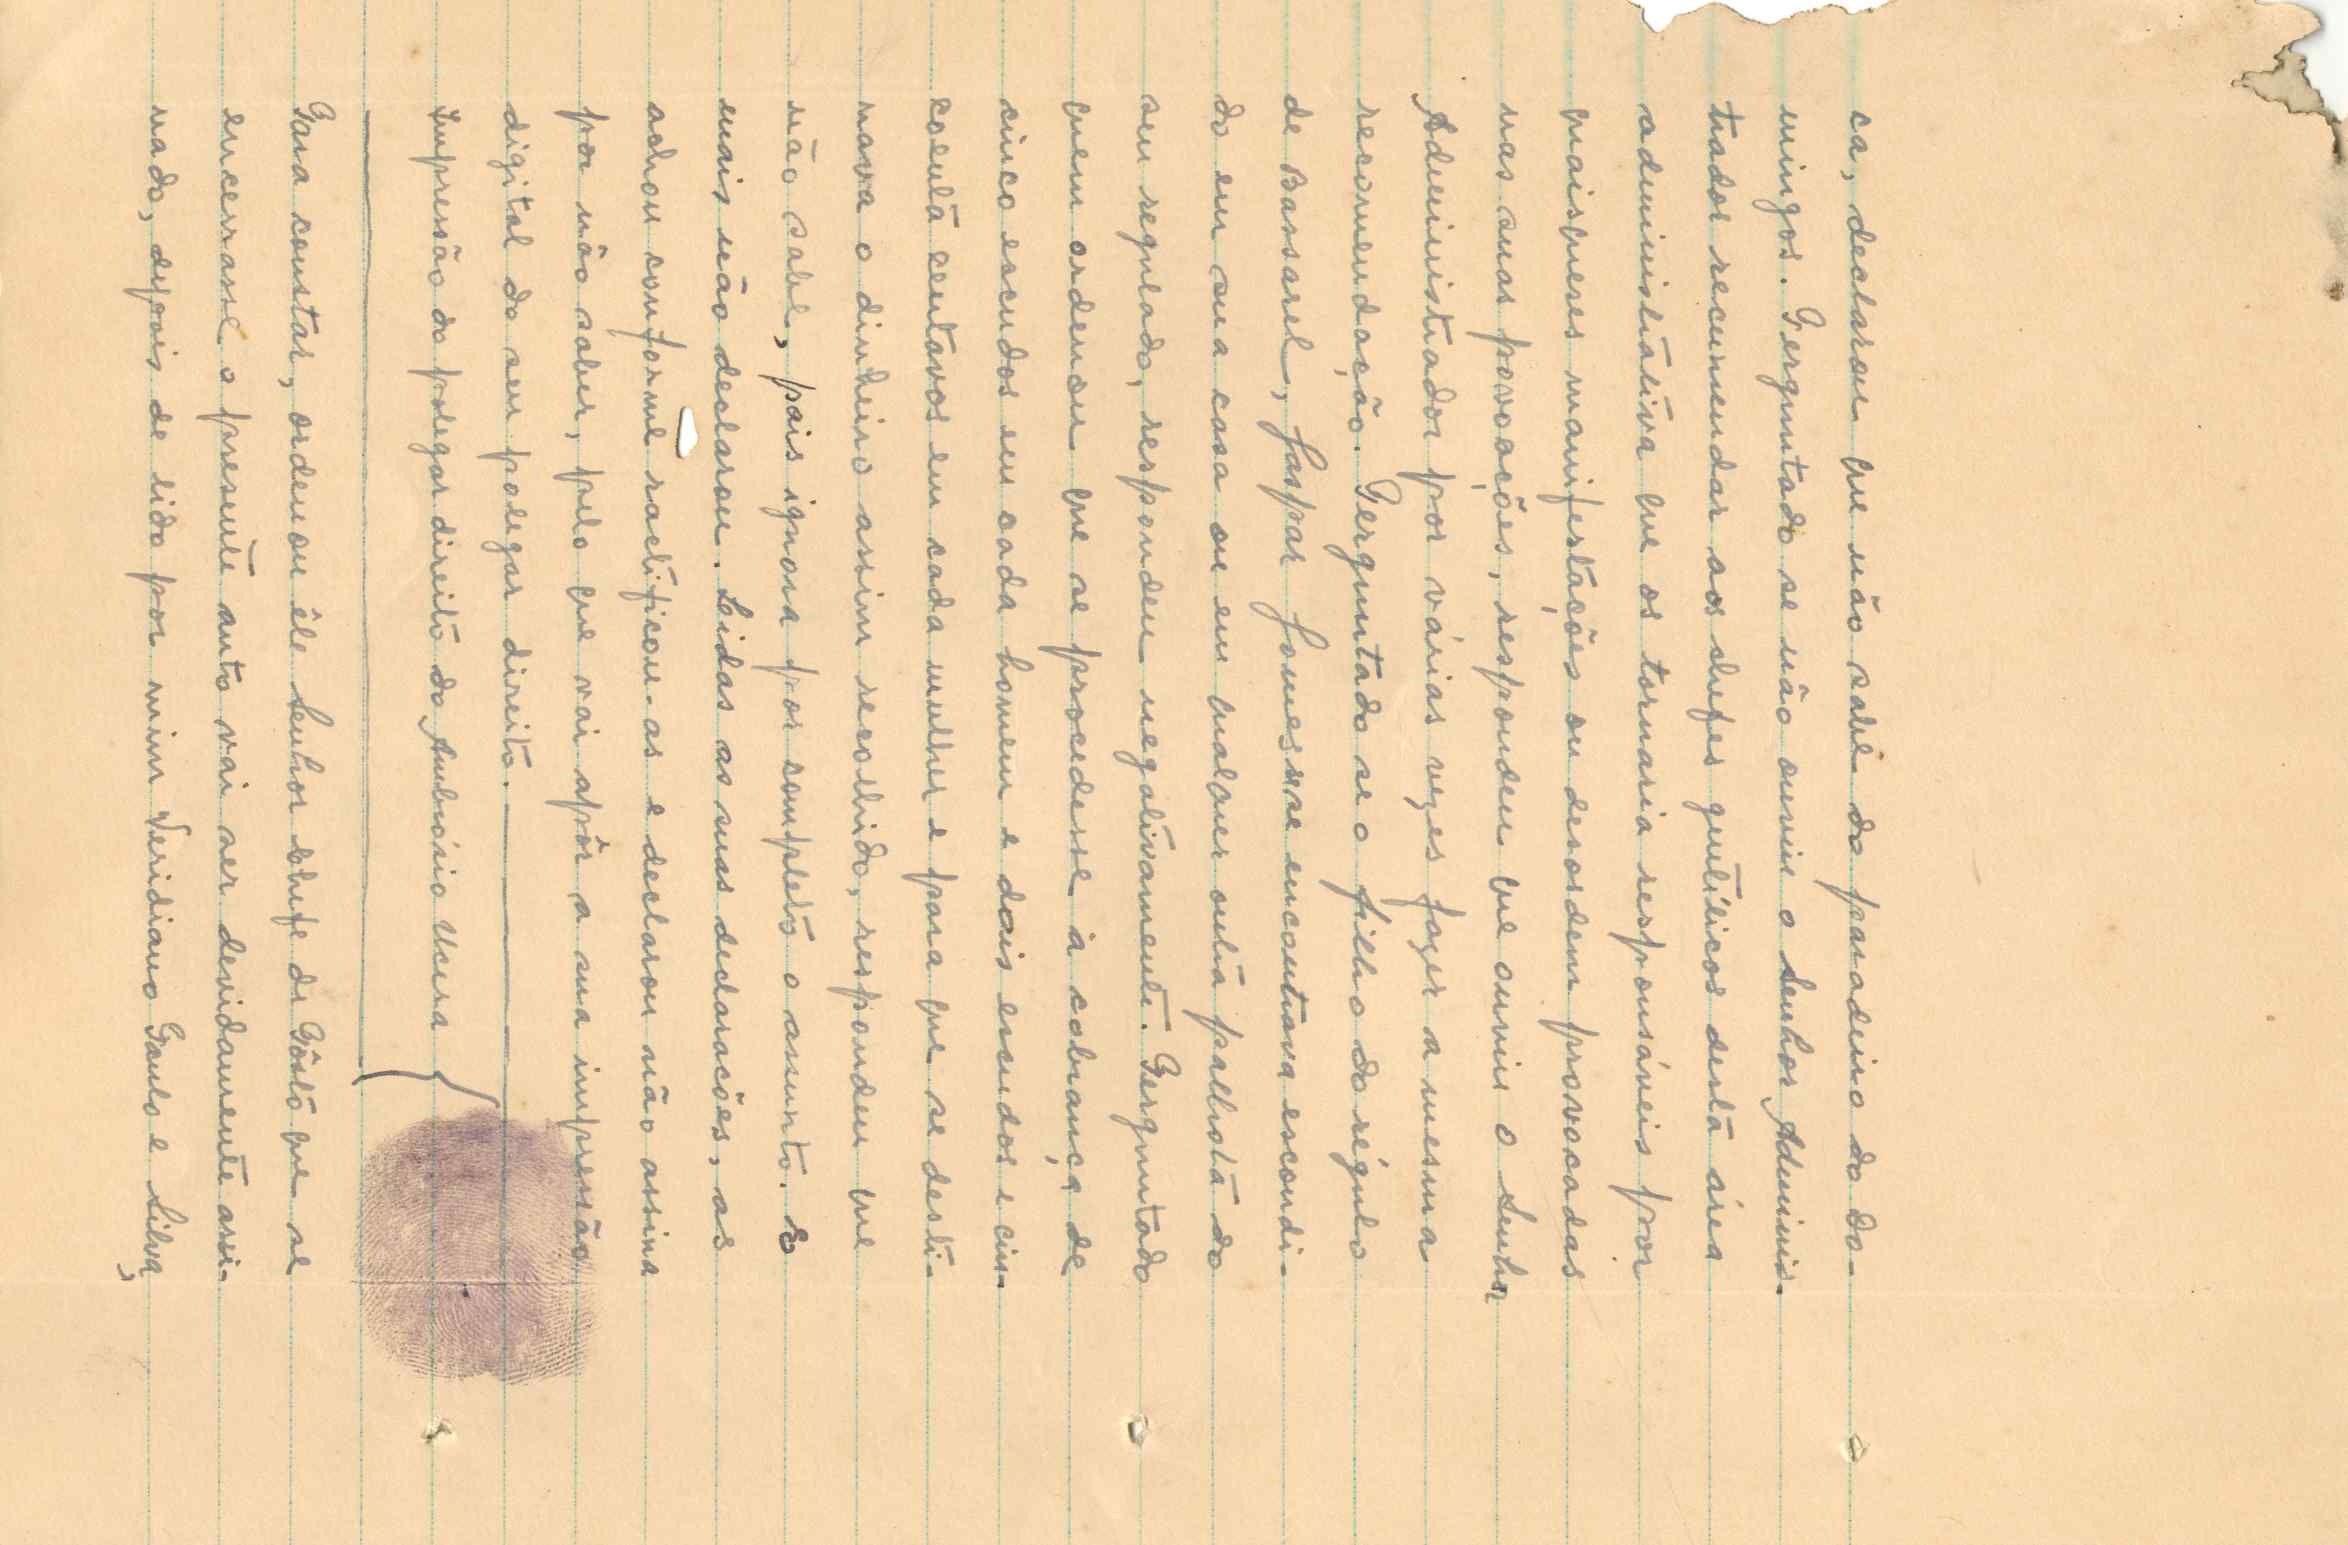 ca, declarou que não sabe do paradeiro do Do-
mingos. Perguntado se não ouviu o Senhor Adminis-
trador recumendar aos chefes gentilicos desta área
administrativa que os tornaria responsáveis por
quaisqueres manifestações ou desordem provocadas
nas suas povoações, respondeu que ouviu o Senhor
Administrador por várias vezes fazer a mesma
recomendação. Perguntado se o filho do régulo
de Bassarel, Gaspar Gomes se encontrava escondi-
do em sua casa ou em qualquer outra palhota do
seu regulado, respondeu negativamente. Perguntado
quem ordenou que se procedesse à cobrança de
cinco escudos em cada homem e dois escudos e cin-
coenta centavos em cada mulher e para que se desti-
nava o dinheiro assim recolhido, respondeu que
não sabe, pois ignora por completo o assunto. E
mais não declarou. Lidas as suas declarações, as
achou conforme ractificou-as e declarou não assina
por não saber, pelo que vai apôr a sua impressão
digital do seu polegar direito.
Impressão do polegar direito do Ambrósio
Para constar, ordenou êle Senhor Chefe de Pôsto que se
encerrasse o presente auto vai ser devidamente assi-
nado, depois de lido por mim Veridiano Paulo e Silva,